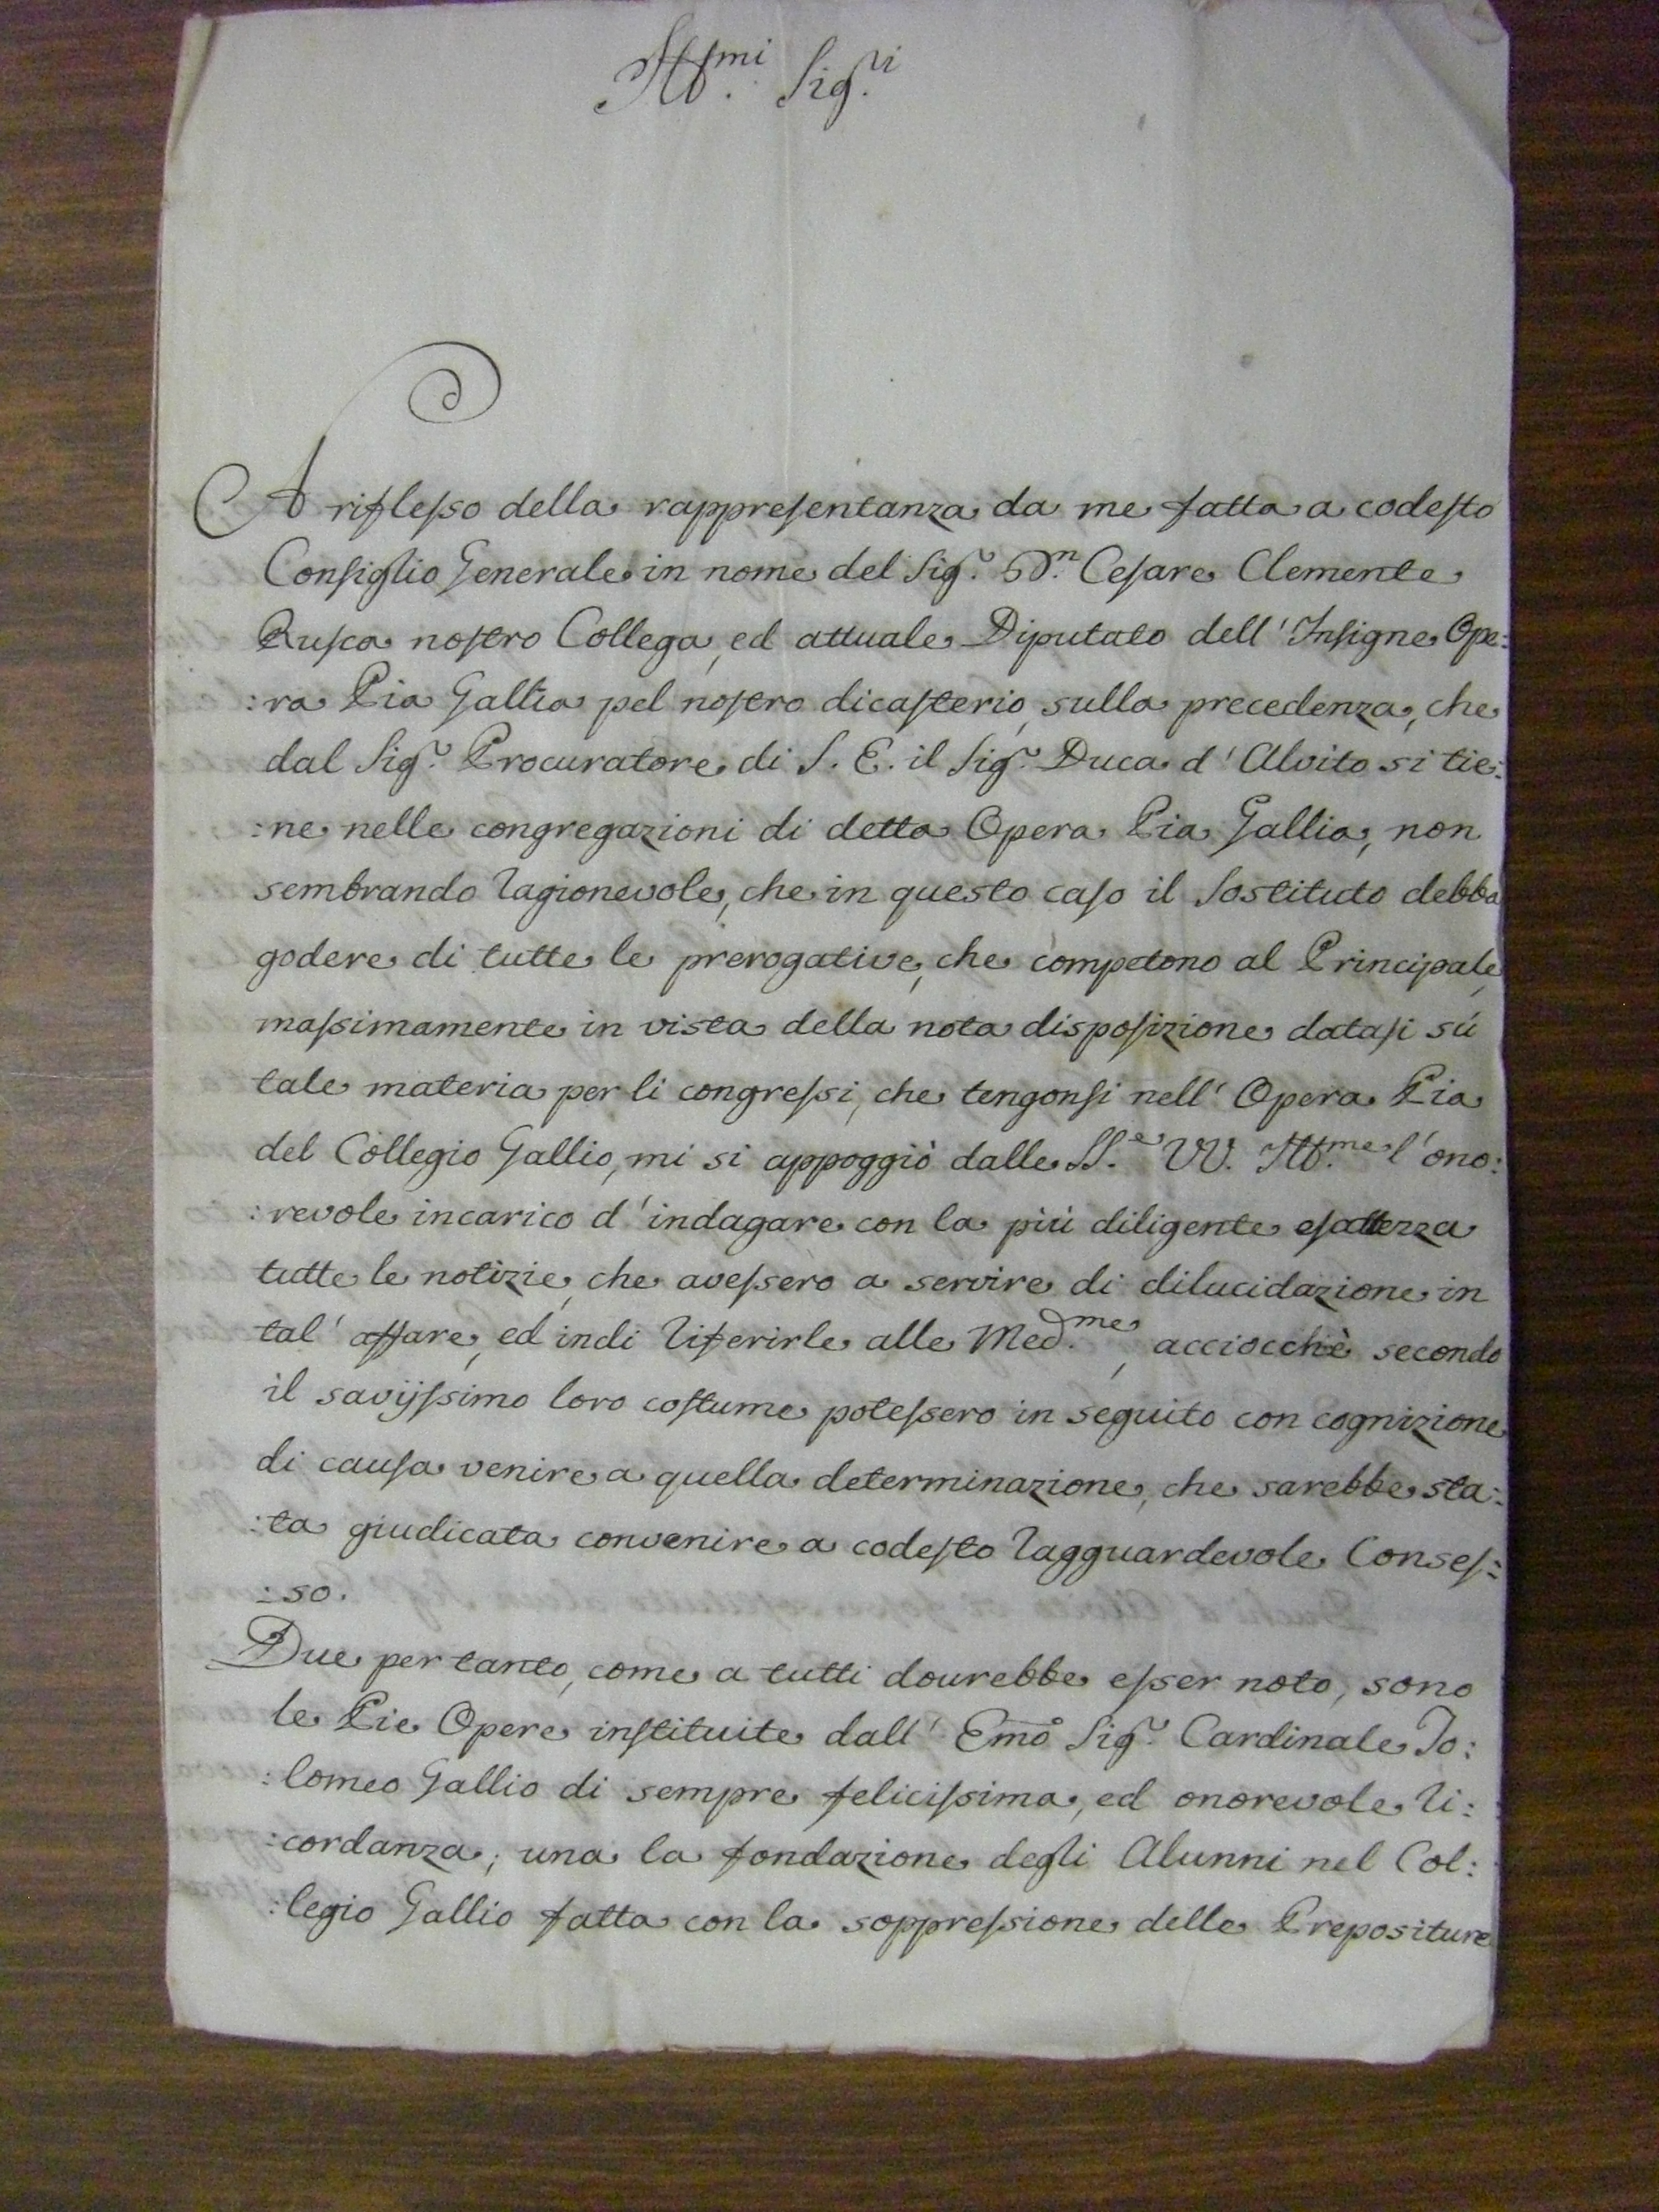 Ill.mi Sig.ri
A riflesso della rappresentanza da me fatta a codesto
Consiglio Generale in nome del Sig.r D.n Cesare Clemente
Rusca nostro Collega, ed attuale Diputato dell'Insigne Ope:
:ra Pia Gallia pel nostro dicasterio, sulla precedenza, che
dal Sig.r Procuratore di S. E. il Sig.r Duca d'Alvito si tie:
:ne nelle congregazioni di detta Opera Pia Gallia, non
sembrando ragionevole, che in questo caso il Sostituto debba
godere di tutte le prerogative, che competono al Principale,
massimamente in vista della nota disposizione datasi sú
tale materia per li congressi, che tengonsi nell'Opera Pia
del Collegio Gallio, mi si appoggiò dalle SS.e VV. Ill.me l'ono:
:revole incarico d'indagare con la più diligente esattezza
tutte le notizie, che avessero a servire di dilucidazione in
tal'affare, ed indi riferirle alle Med.me, acciocchè secondo
il savijssimo loro costume potessero in seguito con cognizione
di causa venire a quella determinazione, che sarebbe sta:
:ta giudicata convenire a codesto ragguardevole Consес:
:so.
Due per tanto, come a tutti dourebbe esser noto, sono
le Pie Opere instituite dall'Emo Sig.r Cardinale To:
:lomeo Gallio di sempre felicissima, ed onorevole ri:
:cordanza; una la fondazione degli Alunni nel Col:
:legio Gallio fatta con la soppressione delle Prepositure